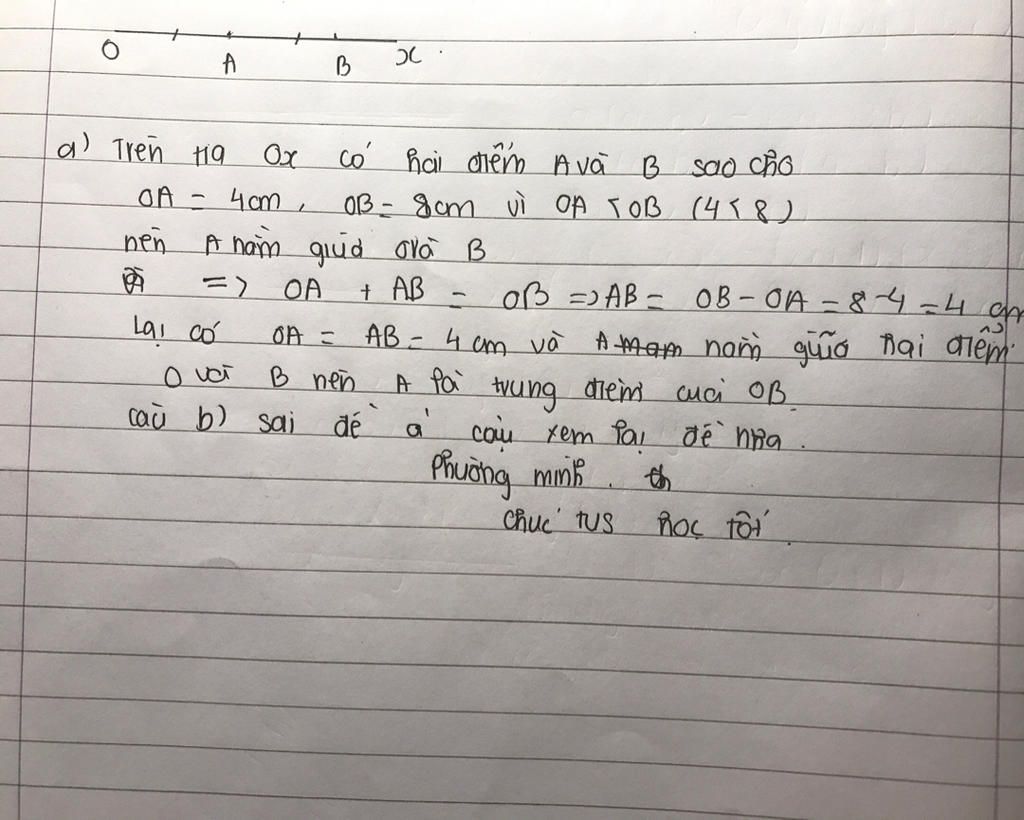 O A B x
a) Trên tia Ox có hai điểm A và B sao cho
OA = 4cm, OB = 8cm vì OA < OB (4 < 8)
nên A nằm giữa O và B
=> OA + AB = OB => AB = OB - OA = 8 - 4 = 4 cm
Lại có OA = AB = 4 cm và A nằm giữa hai điểm
O với B nên A là trung điểm của OB.
câu b) sai đề á cậu xem lại đề nha.
Phường minh. th
chúc tus học tốt.